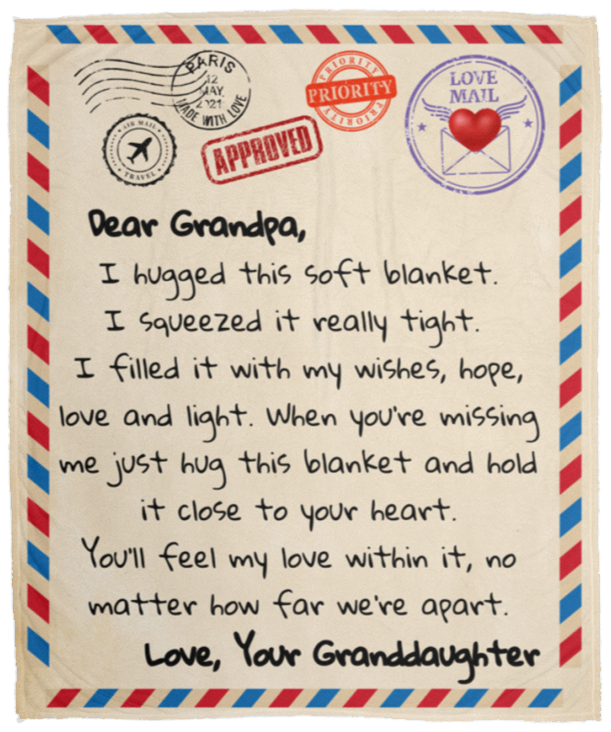 PARIS
12
MAY
2021
MADE WITH LOVE
PRIORITY
PRIORITY
PRIORITY
LOVE
MAIL
AIR MAIL
TRAVEL
APPROVED
Dear Grandpa,
I hugged this soft blanket.
I squeezed it really tight.
I filled it with my wishes, hope,
love and light. When you're missing
me just hug this blanket and hold
it close to your heart.
You'll feel my love within it, no
matter how far we're apart.
Love, Your Granddaughter